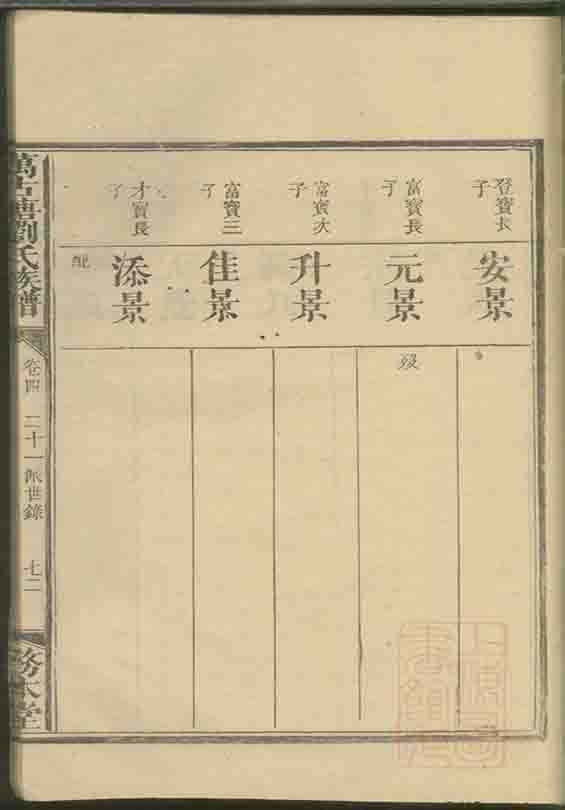 登寶長子
安景
富寶長子
元景
歿
富寶次子
升景
富寶三子
佳景
才寶長子
添景
配
萬古塘劉氏族譜
卷四
二十一派世錄
七二
務本堂